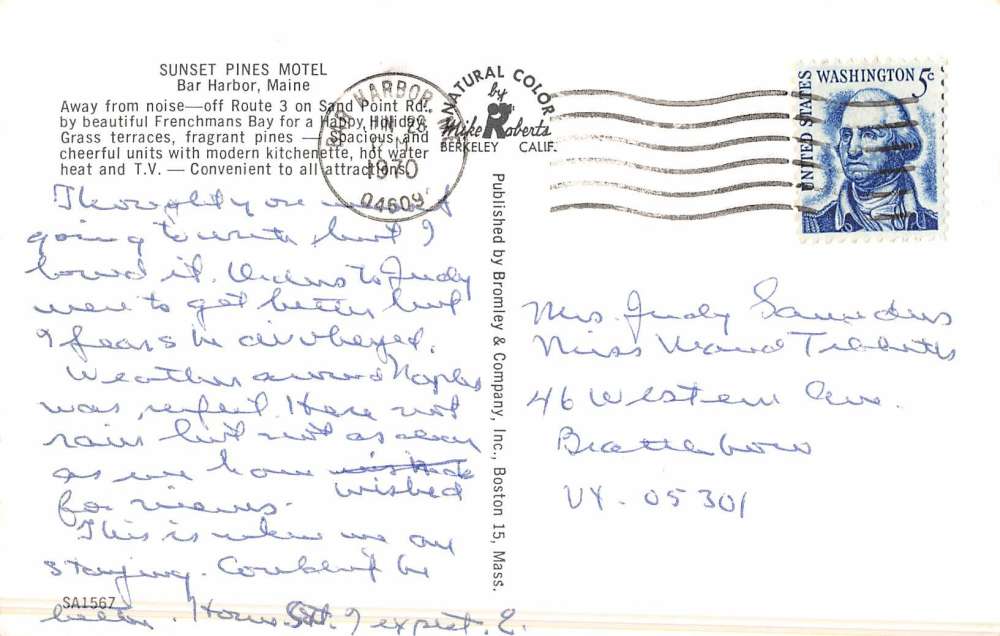 SUNSET PINES MOTEL
Bar Harbor, Maine
Away from noise—off Route 3 on Sand Point Rd.,
by beautiful Frenchmans Bay for a Happy Holiday.
Grass terraces, fragrant pines — Spacious and
cheerful units with modern kitchenette, hot water
heat and T.V. — Convenient to all attractions.
BAR HARBOR
JUN 28
1970
04609
NATURAL COLOR
by
Mike Roberts
BERKELEY CALIF.
UNITED STATES
WASHINGTON 5c
Thought you
going to write but I
loved it. Orders to Judy
were to get better but
I fear she disobeyed.
Weather around Naples
was perfect. Here not
rain but not as clear
as we have
wished
for views.
This is where we are
staying. Couldn't be
better. Home Sat. I expect. E.
SA1567
Published by Bromley & Company, Inc., Boston 15, Mass.
Mrs. Judy Saunders
Miss Maud Tibbetts
46 Western Ave.
Brattleboro
VT. 05301